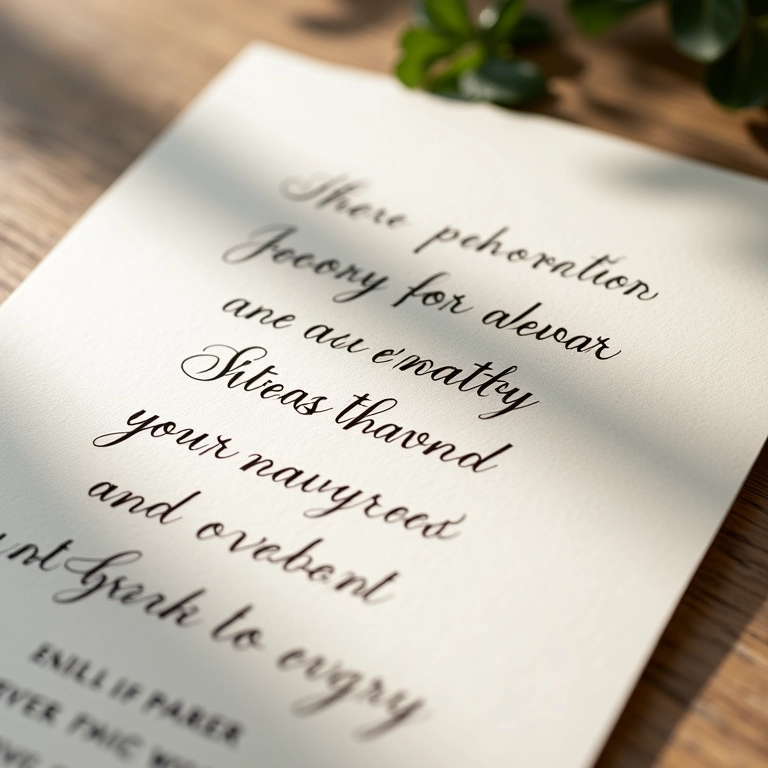 There pehoration
Jecory for alevar
ane au e'natty
Siteas thavnd
your navyroes
and ovebant
nt Grark to ovgry
ENILL IF PARER
EVER FHIC